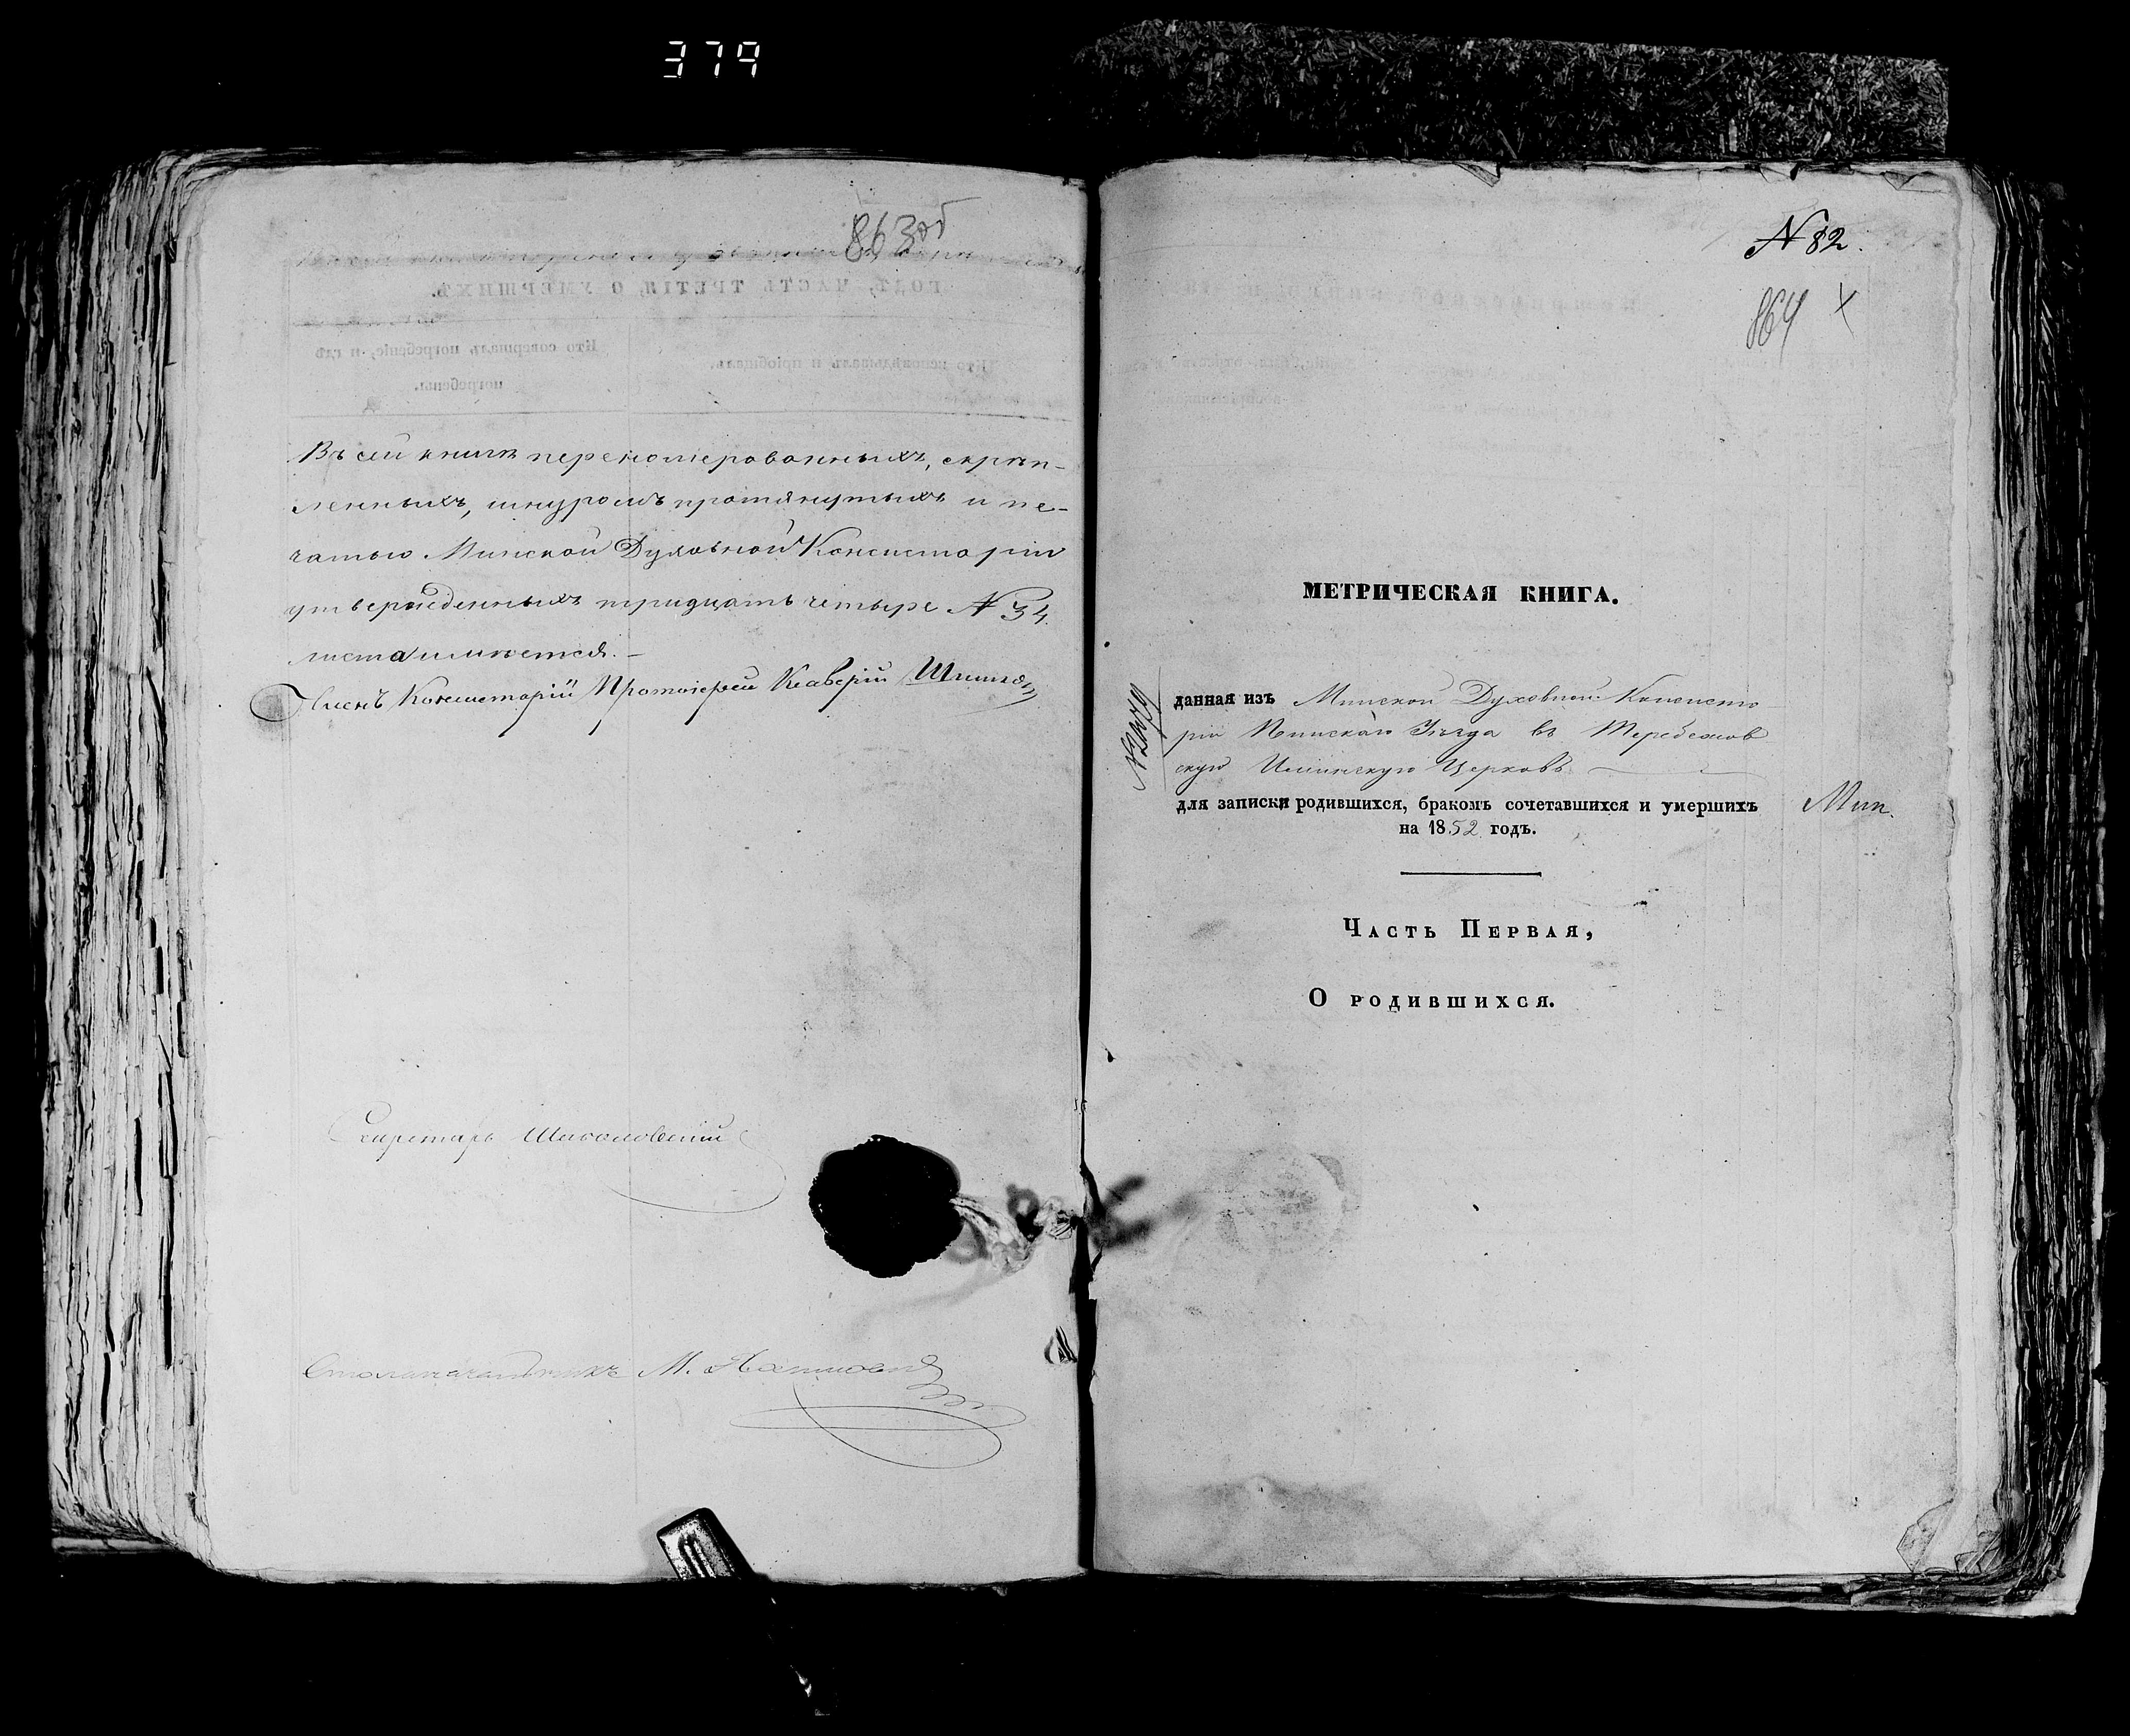 379
863об
Въ сей книгѣ переномерованныхъ, скрѣп-
ленныхъ, шнуромъ протянутыхъ и пе-
чатью Минской Духовной Консисторіи
утвержденныхъ тридцать четыре № 34.
листа имѣется.-
Членъ Консисторіи Протоіерей Ксаверій
Секретарь
М.
№ 82.
864 х
МЕТРИЧЕСКАЯ КНИГА.
данная изъ Минской Духовной Консисто
ріи Пинскаго Уѣзда въ Теребежов
скую Церковь
для записки родившихся, бракомъ сочетавшихся и умершихъ
Мин.
на 1852 годъ.
Часть Первая,
О родившихся.